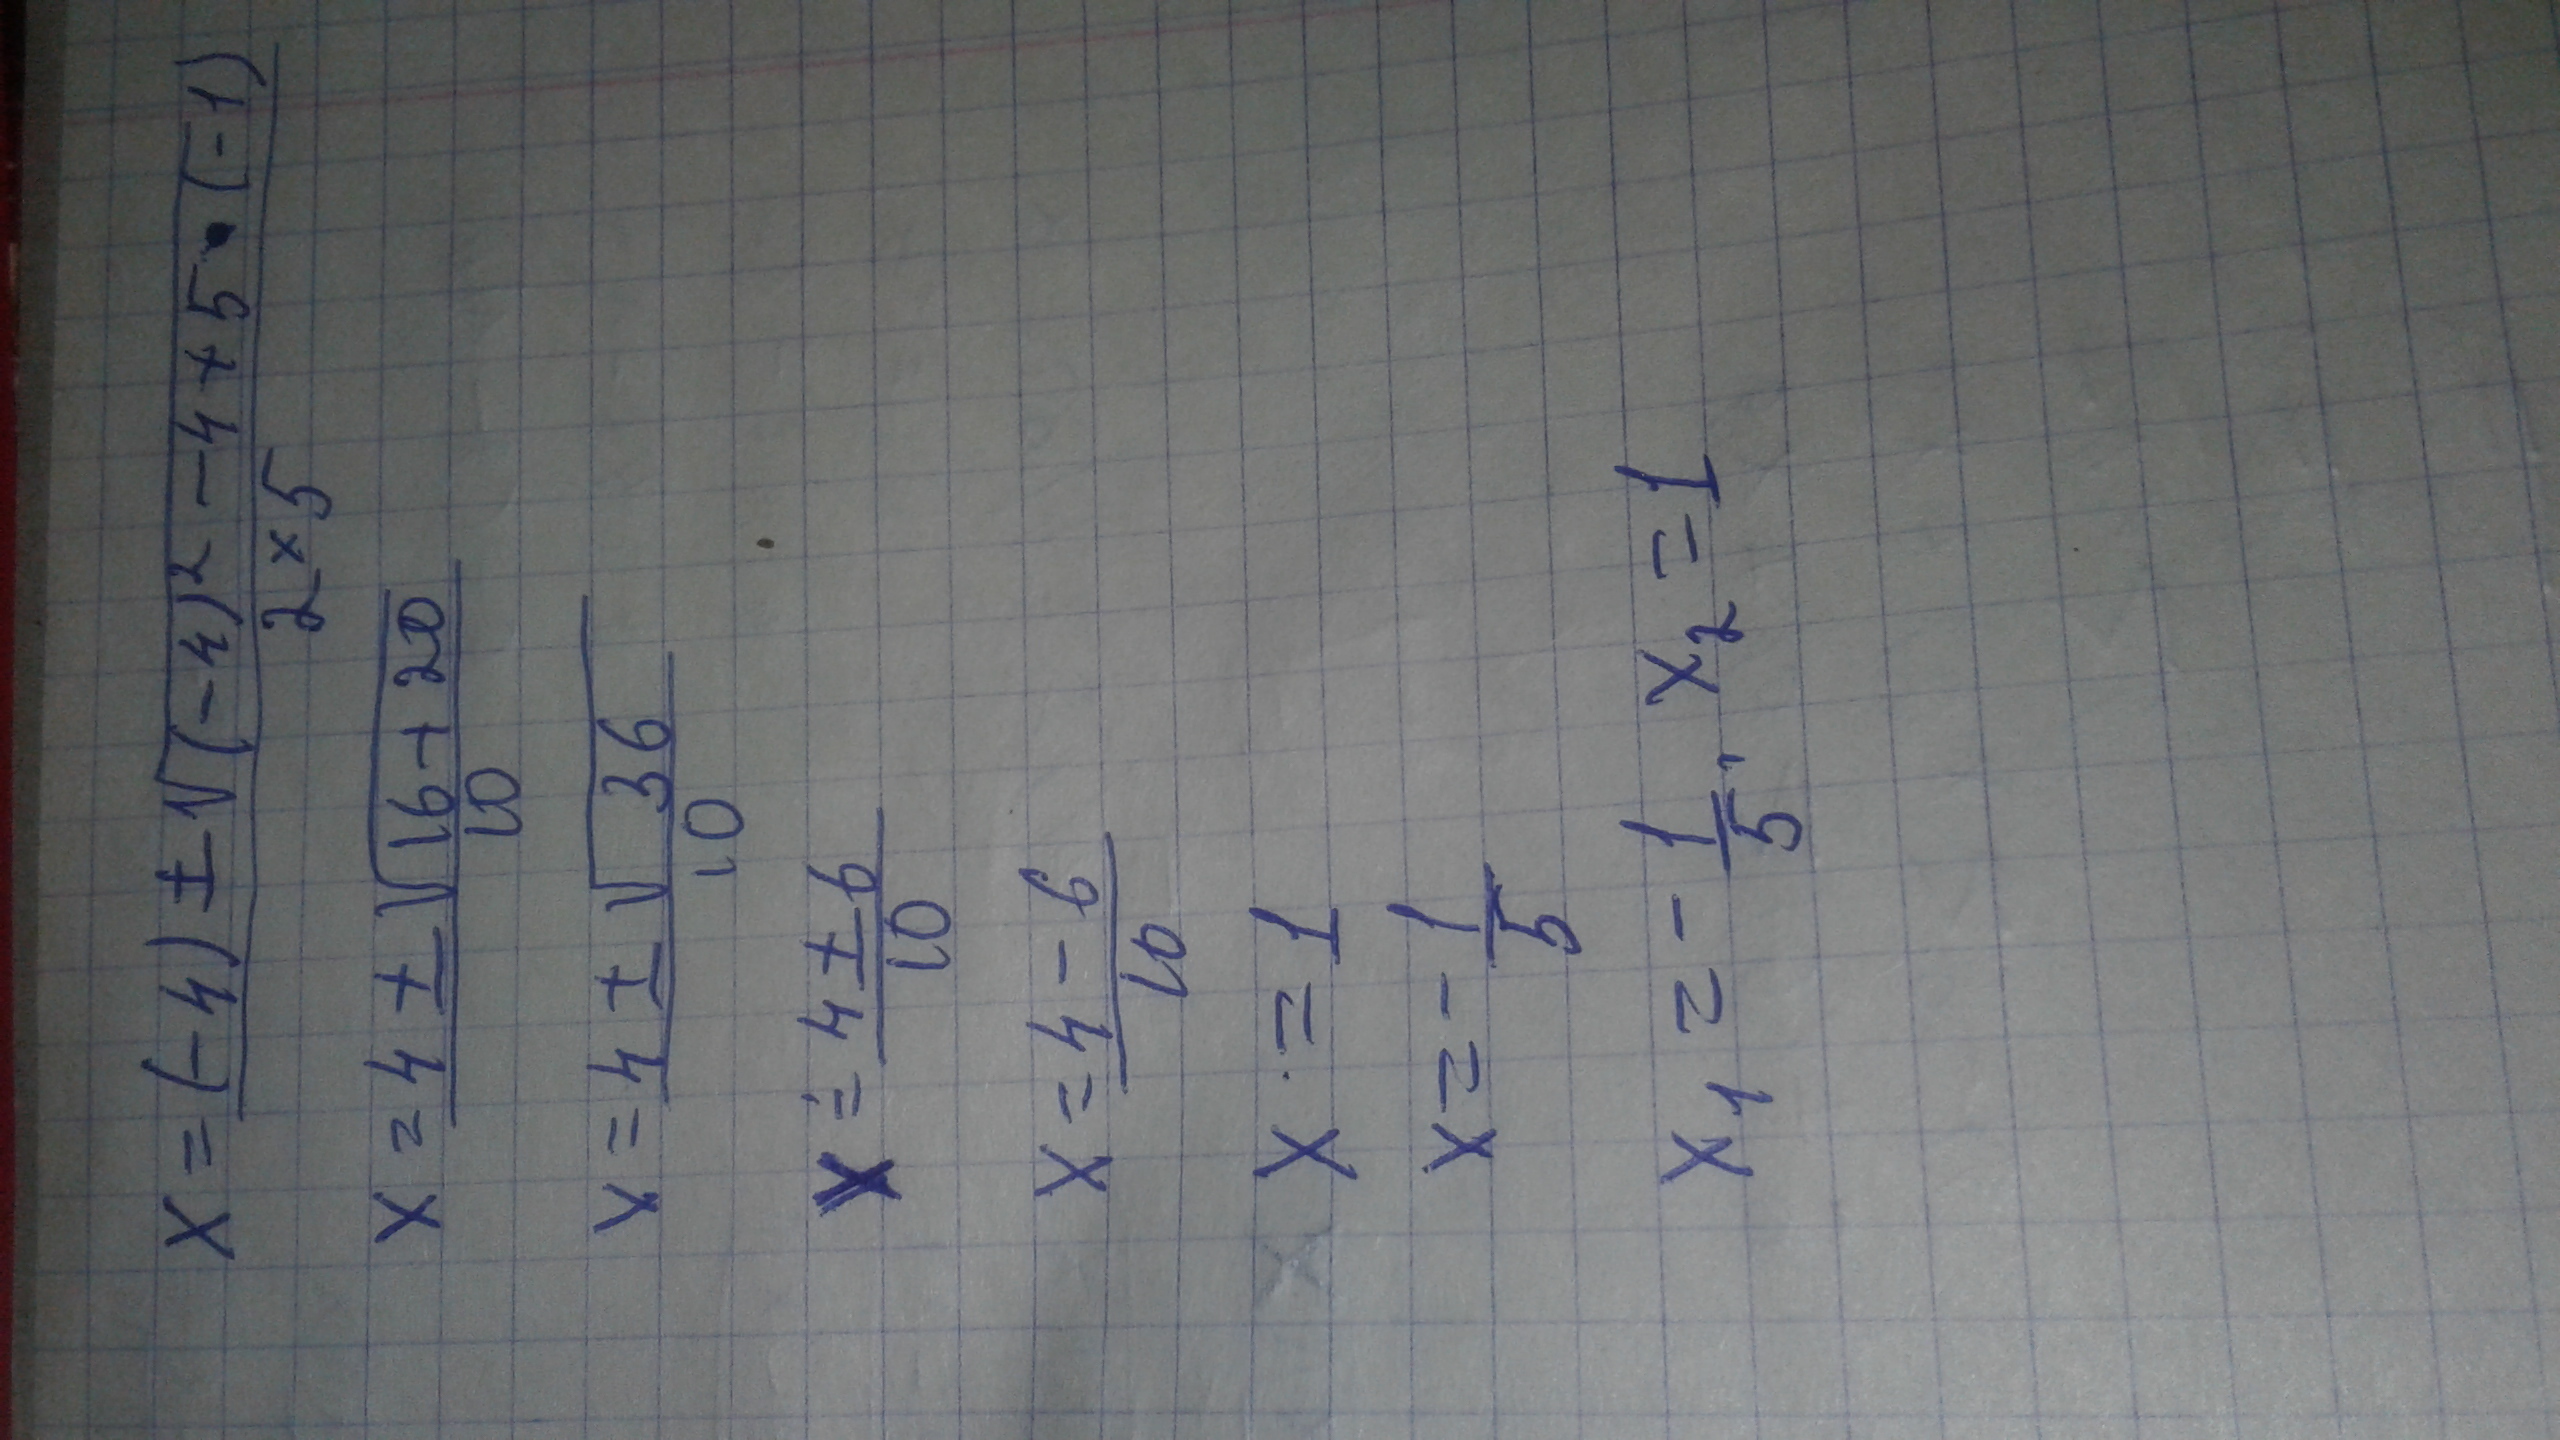 x = (-4) ± √(-4)² - 4 × 5 · (-1) / 2 × 5
x = 4 ± √16 + 20 / 10
x = 4 ± √36 / 10
x = 4 ± 6 / 10
x = 4 - 6 / 10
x = 1
x = - 1/5
x₁ = - 1/5, x₂ = 1